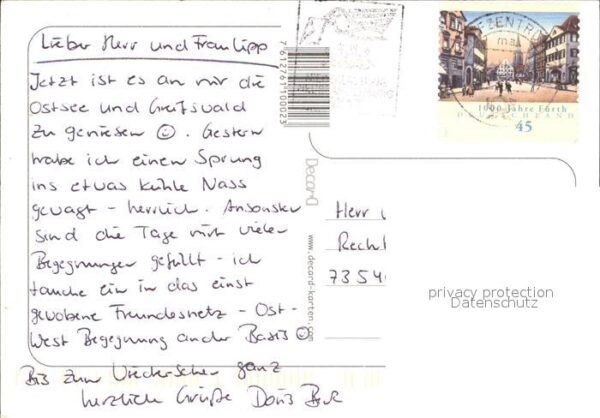 Lieber Herr und Frau Lipp
Jetzt ist es an mir die
Ostsee und Greifswald
zu geniesen ☺. Gestern
habe ich einen Sprung
ins etwas kühle Nass
gewagt - herrlich. Ansonsten
sind die Tage mit vielen
Begegnungen gefüllt - ich
tauche ein in das einst
gewobene Freundesnetz - Ost-
West Begegnung an der Basis ☺
Bis zum Wiedersehen ganz
herzlich Grüße Doris
7612761100023
Decard
www.decard-karten.com
EZENTR
1000 Jahre Fürth
DEUTSCHLAND
45
Herr
Recht
7354
privacy protection
Datenschutz